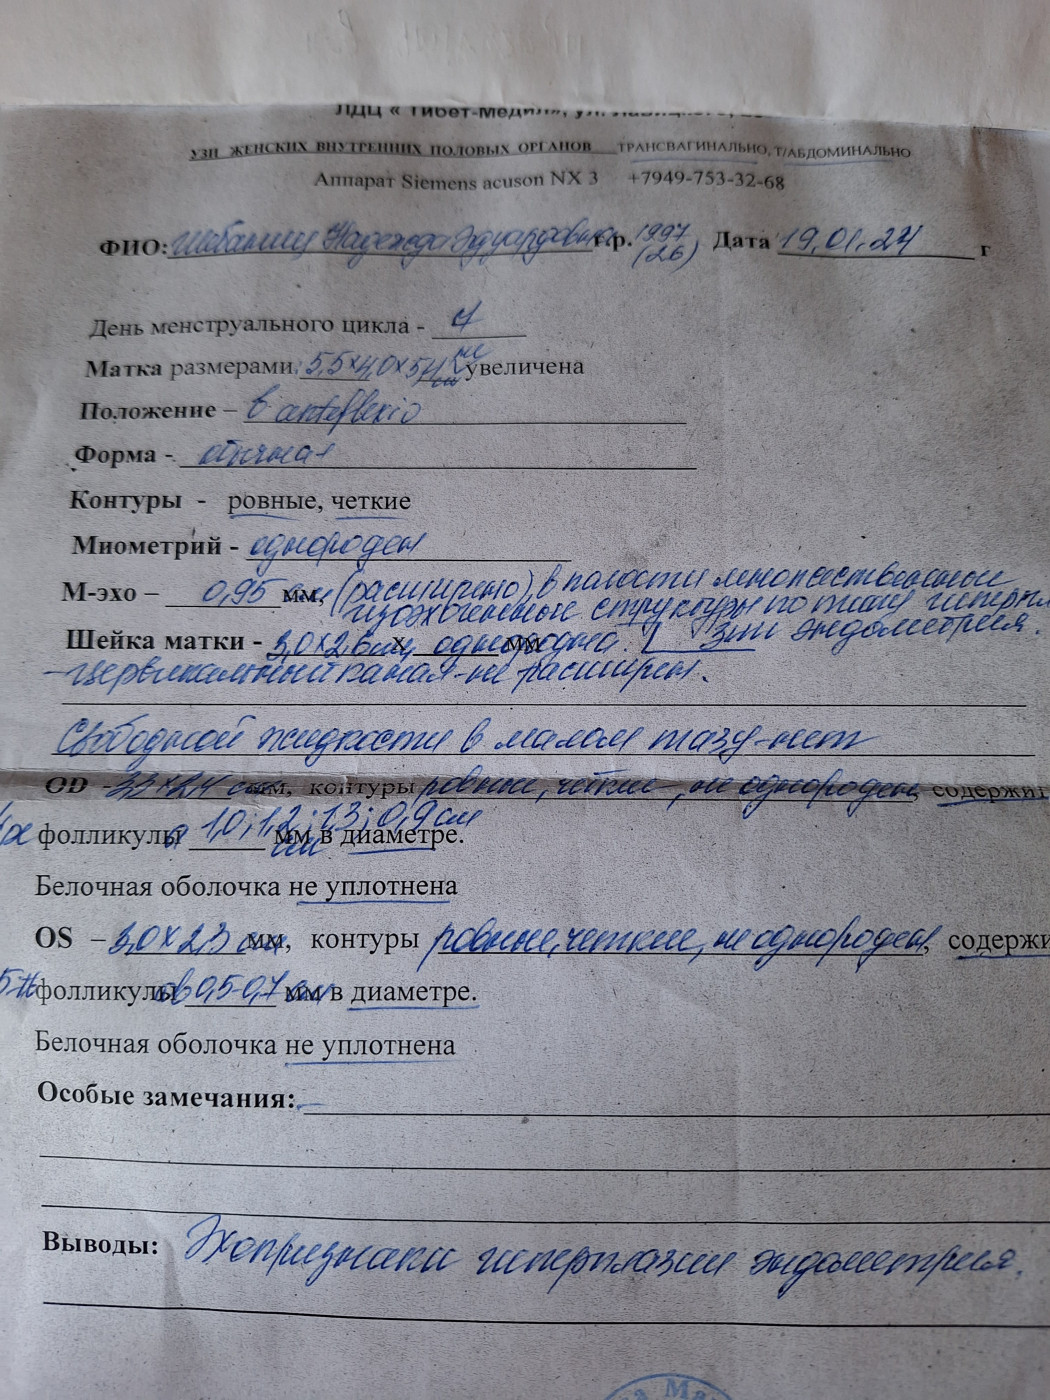 ЛДЦ « Тибет-Медил», ул.
УЗИ ЖЕНСКИХ ВНУТРЕННИХ ПОЛОВЫХ ОРГАНОВ ТРАНСВАГИНАЛЬНО, Т/АБДОМИНАЛЬНО
Аппарат Siemens acuson NX 3 +7949-753-32-68
ФИО: Надежда Эдуардовна г.р. 1997 (26) Дата 19.01.24 г
День менструального цикла -
Матка размерами: 5,5х4,0х5,4 см не увеличена
Положение – в anteflexio
Форма - обычная
Контуры - ровные, четкие
Миометрий - однороден
М-эхо – 0,95 см мм, (расширено), в полости множественные
изоэхогенные структуры по типу гиперпла
зии эндометрия.
Шейка матки - 3,0х2,6 см х однородна. мм
цервикальный канал - не расширен.
Свободной жидкости в малом тазу - нет
OD - см мм, контуры ровные, четкие, не однороден, содержит
4х фолликулы 1,0; 1,2; 1,3; 0,9 см мм в диаметре.
см
Белочная оболочка не уплотнена
OS – 3,0х2,3 см мм, контуры ровные, четкие, не однороден, содержи
фолликулы ов 0,5-0,7 см мм в диаметре.
Белочная оболочка не уплотнена
Особые замечания: -
Выводы: Эхопризнаки гиперплазии эндометрия.